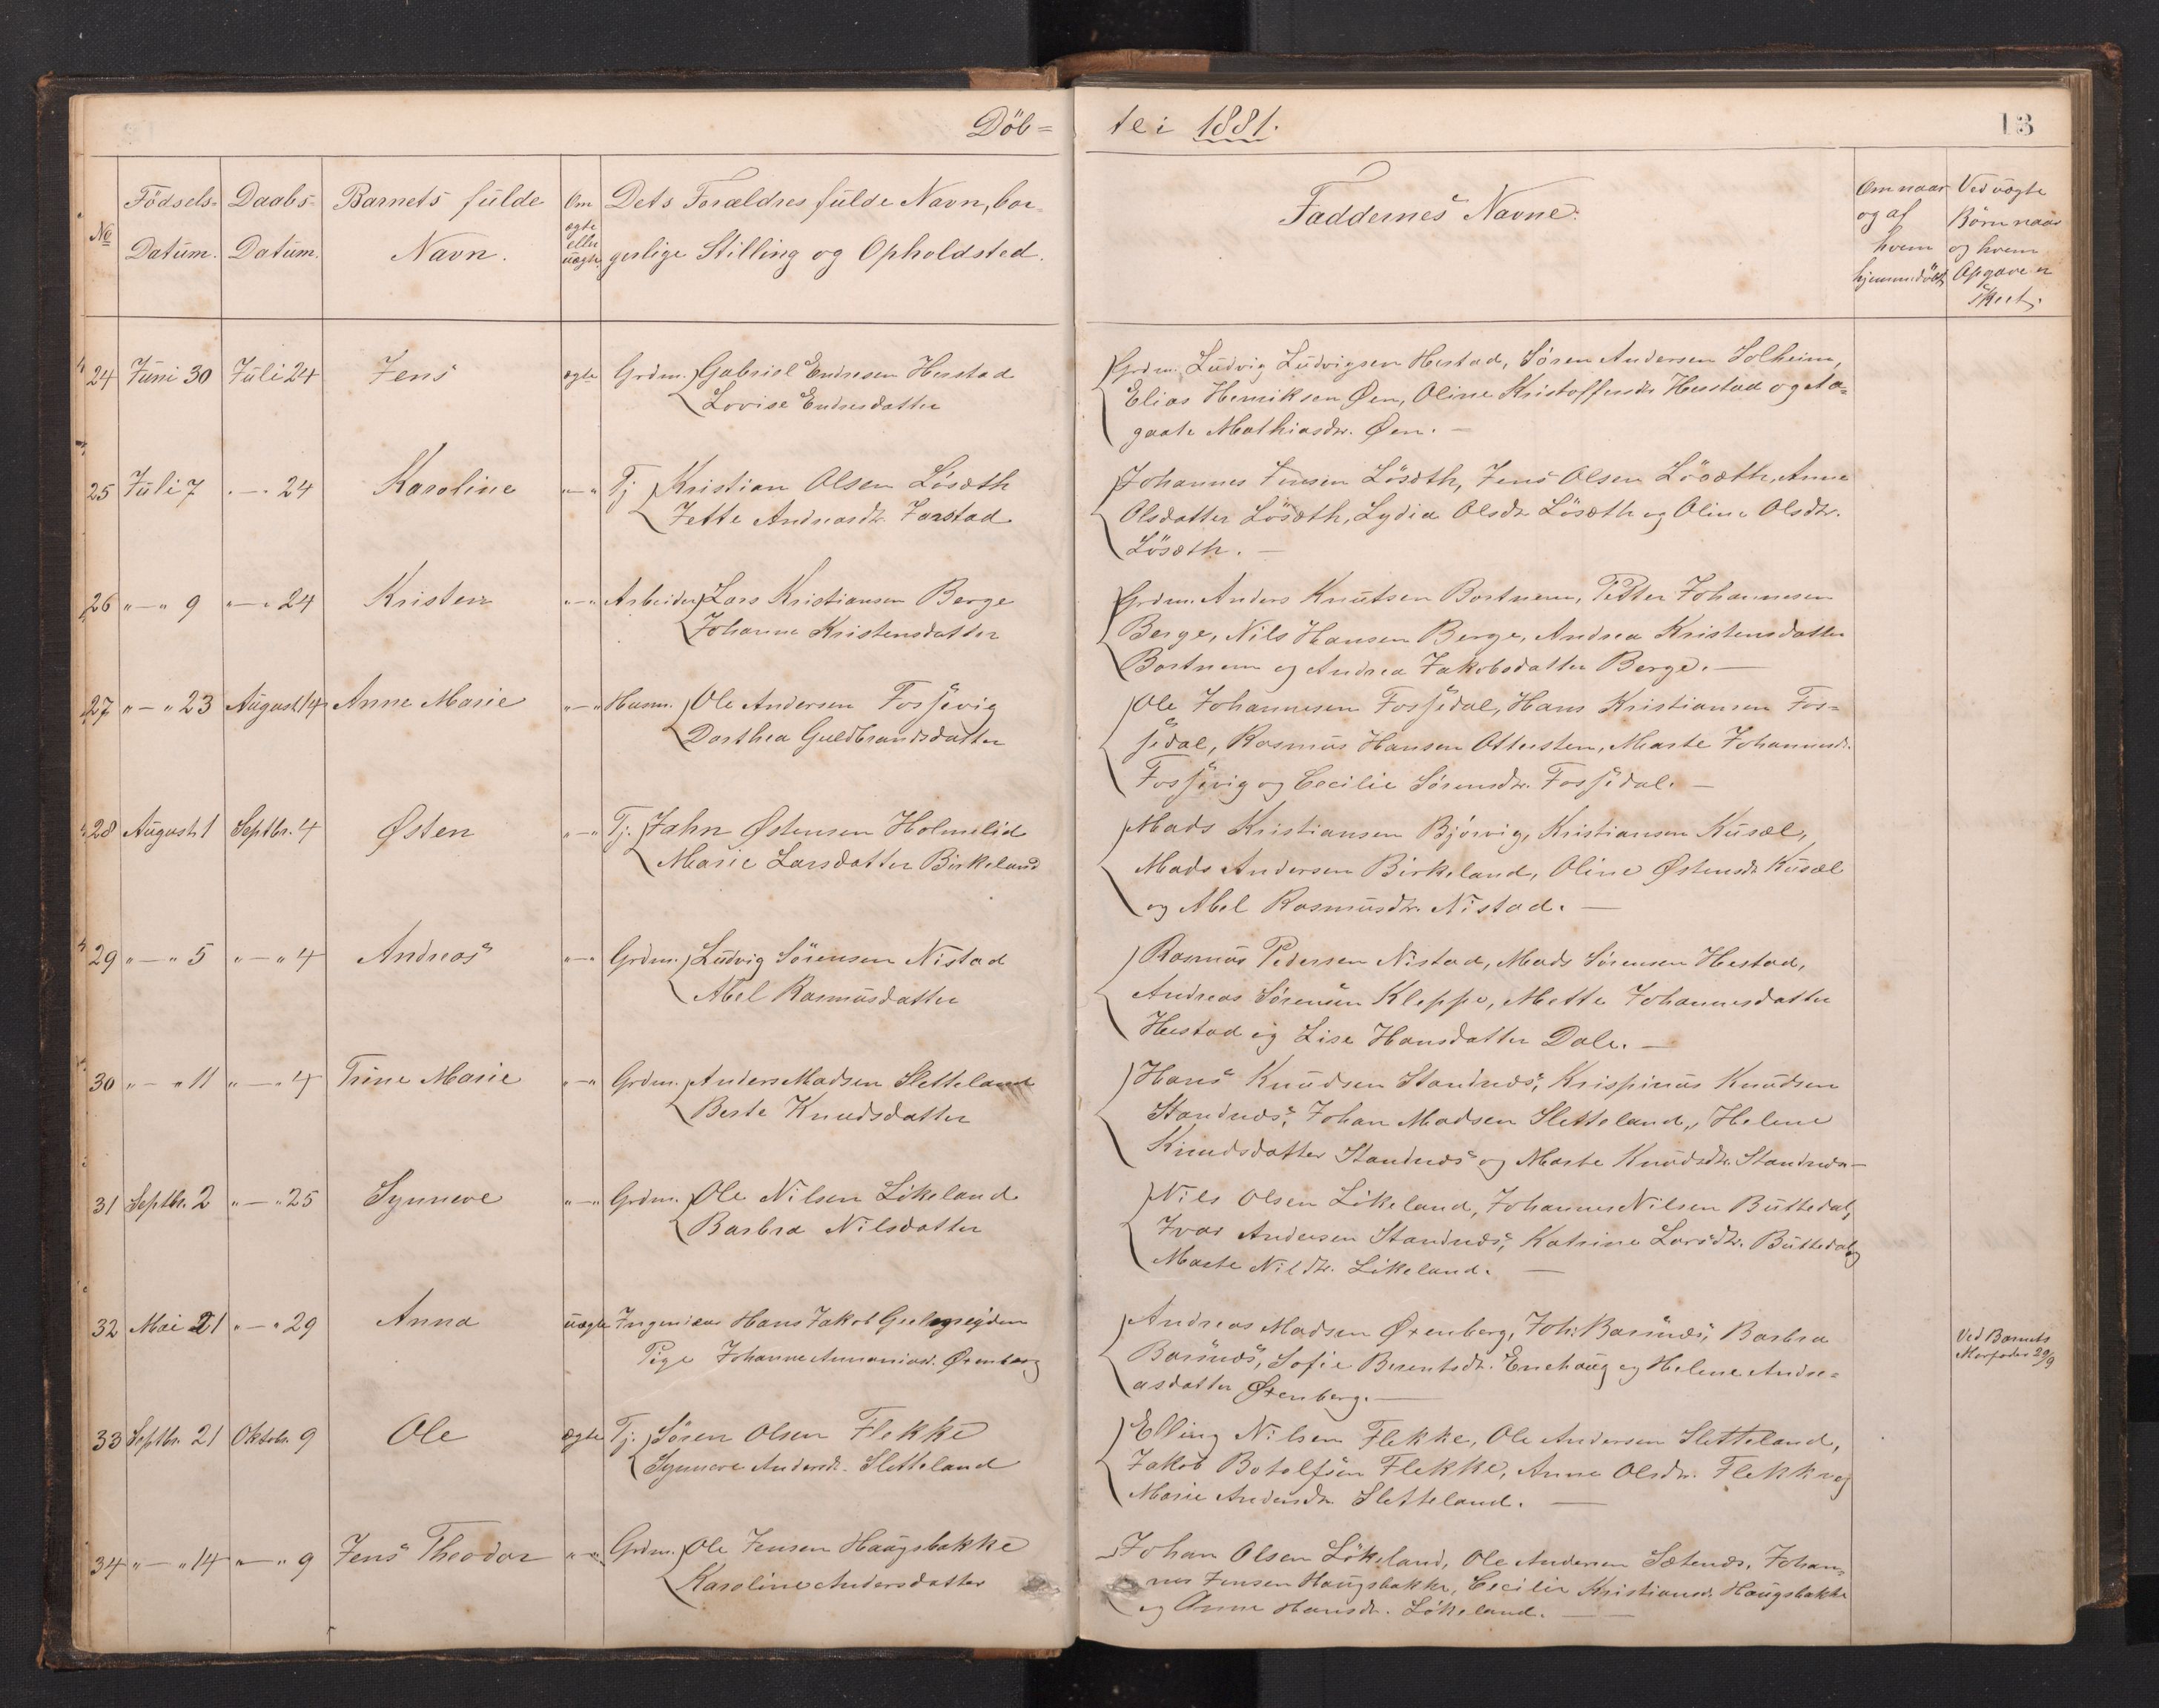 Döb=
te i 1881.
13
No
Födsels-
Datum.
Daabs-
Datum.
Barnets fulde
Navn.
Om
ægte
eller
uægte
Dets Forældres fulde Navn, bor-
gerlige Stilling og Opholdsted.
Faddernes Navne.
Om naar
og af
hvem
hjemmedöbt
Ved uægte
Börn naar
og hvem
Opgave er
skeet.
24 Juni 30 Juli 24 Jens ægte Grdm. Gabriel Endresen Herstad
Lovise Endresdatter
Grdm. Ludvig Ludvigsen Hestad, Sören Andersen Solheim,
Elias Henriksen Øen, Oline Kristoffersdtr Hestad og Aa-
gaate Mathiasdtr. Øen. —
25 Juli 7 " — " 24 Karoline " — " Tj Kristian Olsen Lösæth
Jette Andreasdtr. Jarstad
Johannes Jensen Lösæth, Jens Olsen Lösæth, Anne
Olsdatter Lösæth, Lydia Olsdtr Lösæth og Oline Olsdtr.
Lösæth. —
26 " — " 9 " — " 24 Kristen " — " Arbeider Lars Kristiansen Berge
Johanne Kristensdatter
Grdm. Anders Knutsen Bortnem, Petter Johannesen
Berge, Nils Hansen Berge, Andrea Kristensdatter
Bortnem og Andrea Jakobsdatter Berge. —
27 " — " 23 August 14 Anne Marie " — " Husm. Ole Andersen Fossevig
Dorthea Guldbrandsdatter
Ole Johannesen Fossedal, Hans Kristiansen Fos-
sedal, Rasmus Hansen Ottersten, Marte Johannesdr.
Fossevig og Cecilie Sörensdtr. Fossedal. —
28 August 1 Septbr. 4 Østen " — " Tj. Jahn Østensen Holmelid
Marie Larsdatter Birkeland
Mads Kristiansen Björvig, Kristiansen Kusæl,
Mads Andersen Birkeland, Oline Østensdtr Kusæl
og Abel Rasmusdtr. Nistad. —
29 " — " 5 " — " 4 Andreas " — " Grdm. Ludvig Sörensen Nistad
Abel Rasmusdatter
Rasmus Pedersen Nistad, Mads Sörensen Hestad,
Andreas Sörensen Kleppe, Mette Johannesdatter
Hestad og Lise Hansdatter Dale. —
30 " — " 11 " — " 4 Trine Marie " — " Grdm. Anders Madsen Sletteland
Berte Knudsdatter
Hans Knudsen Standnæs, Krispinus Knudsen
Standnæs, Johan Madsen Sletteland, Helene
Knudsdatter Standnæs og Marte Knudsdtr. Standnæs —
31 Septbr. 2 " — " 25 Synneve " — " Grdm. Ole Nilsen Lökeland
Barbra Nilsdatter
Nils Olsen Lökeland, Johannes Nilsen Buttedal,
Ivar Andersen Standnæs, Katrine Larsdtr. Buttedal og
Marte Nilsdtr. Lökeland. —
32 Mai 21 " — " 29 Anna uægte Ingeniør Hans Jakob
Pige Johanne Annaniasd. Øxenberg
Andreas Madsen Øxenberg, Joh: Barsnæs, Barbra
Barsnæs, Sofie Berentsdtr. Enehaug og Helene Andre-
asdatter Øxenberg. —
Ved Barnets
Morfader 29/9
33 Septbr. 21 Oktobr. 9 Ole ægte Tj. Sören Olsen Flekke
Synneve Andersdr. Sletteland
Elling Nilsen Flekke, Ole Andersen Sletteland,
Jakob Botolfsen Flekke, Anne Olsdtr. Flekke og
Marie Andersdtr. Sletteland. —
34 " — " 14 " — " 9 Jens Theodor " — " Grdm. Ole Jensen Haugsbakke
Karoline Andersdatter
Johan Olsen Lökeland, Ole Andersen Sætenæs, Johan-
nes Jensen Haugsbakke, Cecilie Kristiansd. Haugsbakke
og Anne Hansdtr. Lökeland. —